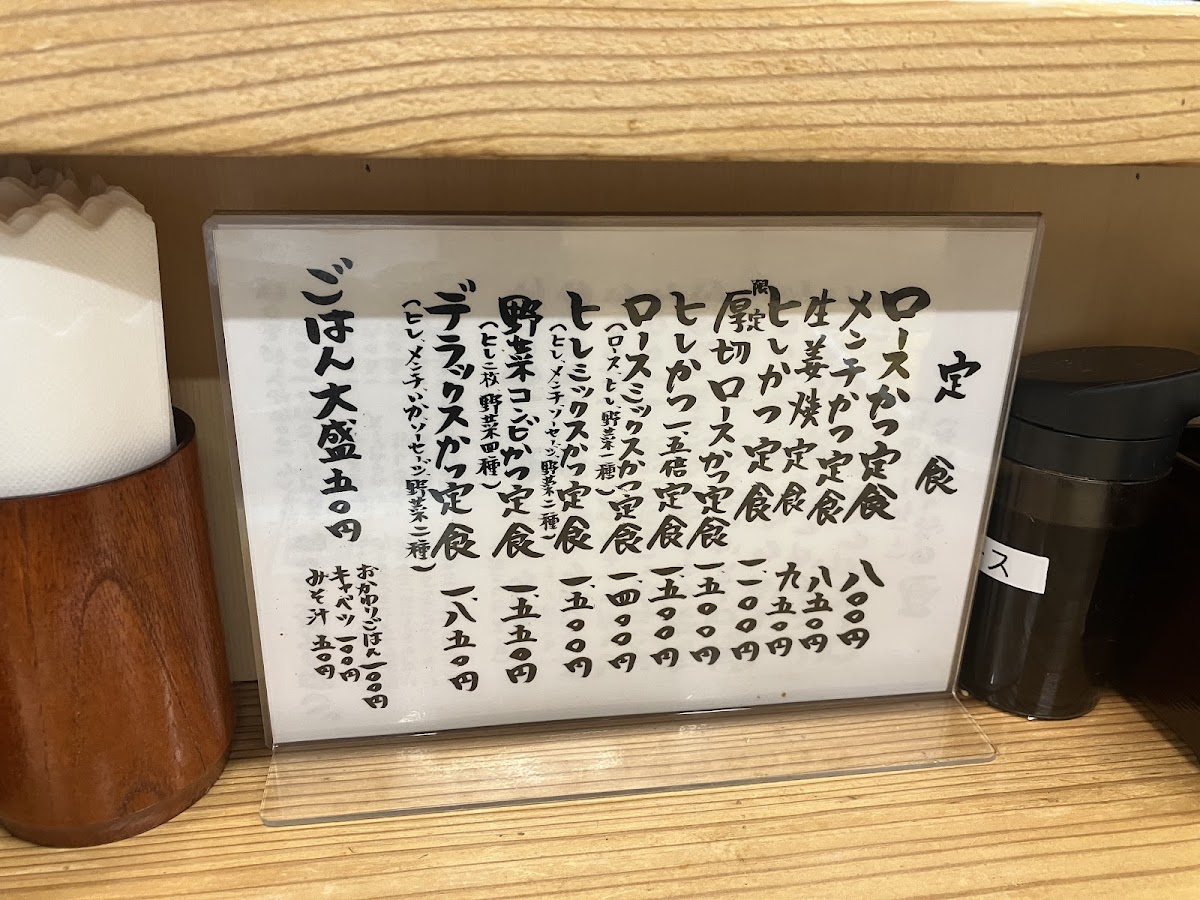 定食
ロースかつ定食 八〇〇円
メンチかつ定食 八五〇円
生姜焼定食 九五〇円
ヒレかつ定食 一、一〇〇円
限定 厚切ロースかつ定食 一、五〇〇円
ヒレかつ一、五倍定食 一、五〇〇円
ロースミックスかつ定食 一、四〇〇円
(ロース、ヒレ、野菜二種)
ヒレミックスかつ定食 一、五〇〇円
(ヒレ、メンチ、ソーセージ、野菜二種)
野菜コンビかつ定食 一、五五〇円
(ヒレ二枚、野菜四種)
デラックスかつ定食 一、八五〇円
(ヒレ、メンチ、いか、ソーセージ、野菜二種)
ごはん大盛五〇円
おかわりごはん 一〇〇円
キャベツ 一〇〇円
みそ汁 五〇円
ース